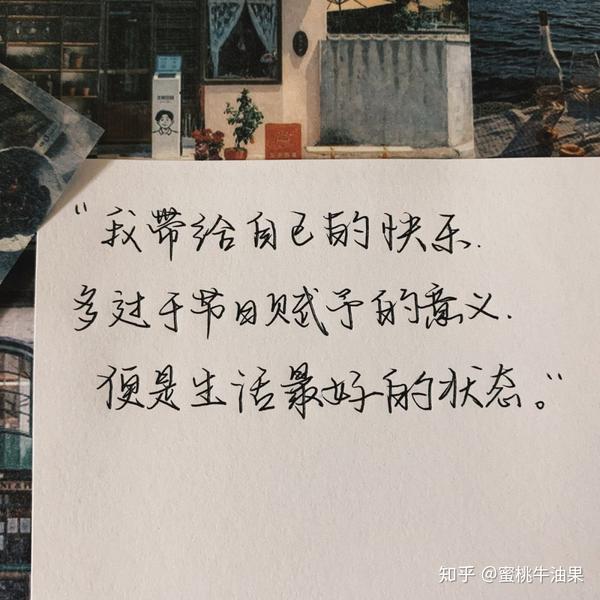 “我带给自己的快乐.
多过于节日赋予的意义.
便是生活最好的状态。”
知乎 @蜜桃牛油果